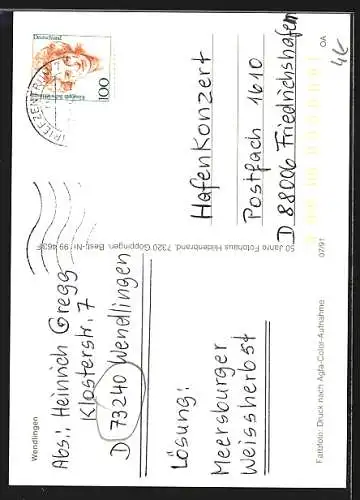 Wendlingen
Abs.: Heinrich Gregg
Klosterstr. 7
D 73240 Wendlingen
Lösung:
Meersburger
Weissherbst
50 Jahre Fotohaus Hildenbrand, 7320 Göppingen, Best.-Nr. 99 463 F
BRIEFZENTRUM
Deutschland
100
Hafenkonzert
Postfach 1610
D 88006 Friedrichshafen
4€
Farbfoto: Druck nach Agfa-Color-Aufnahme
07/91
OA